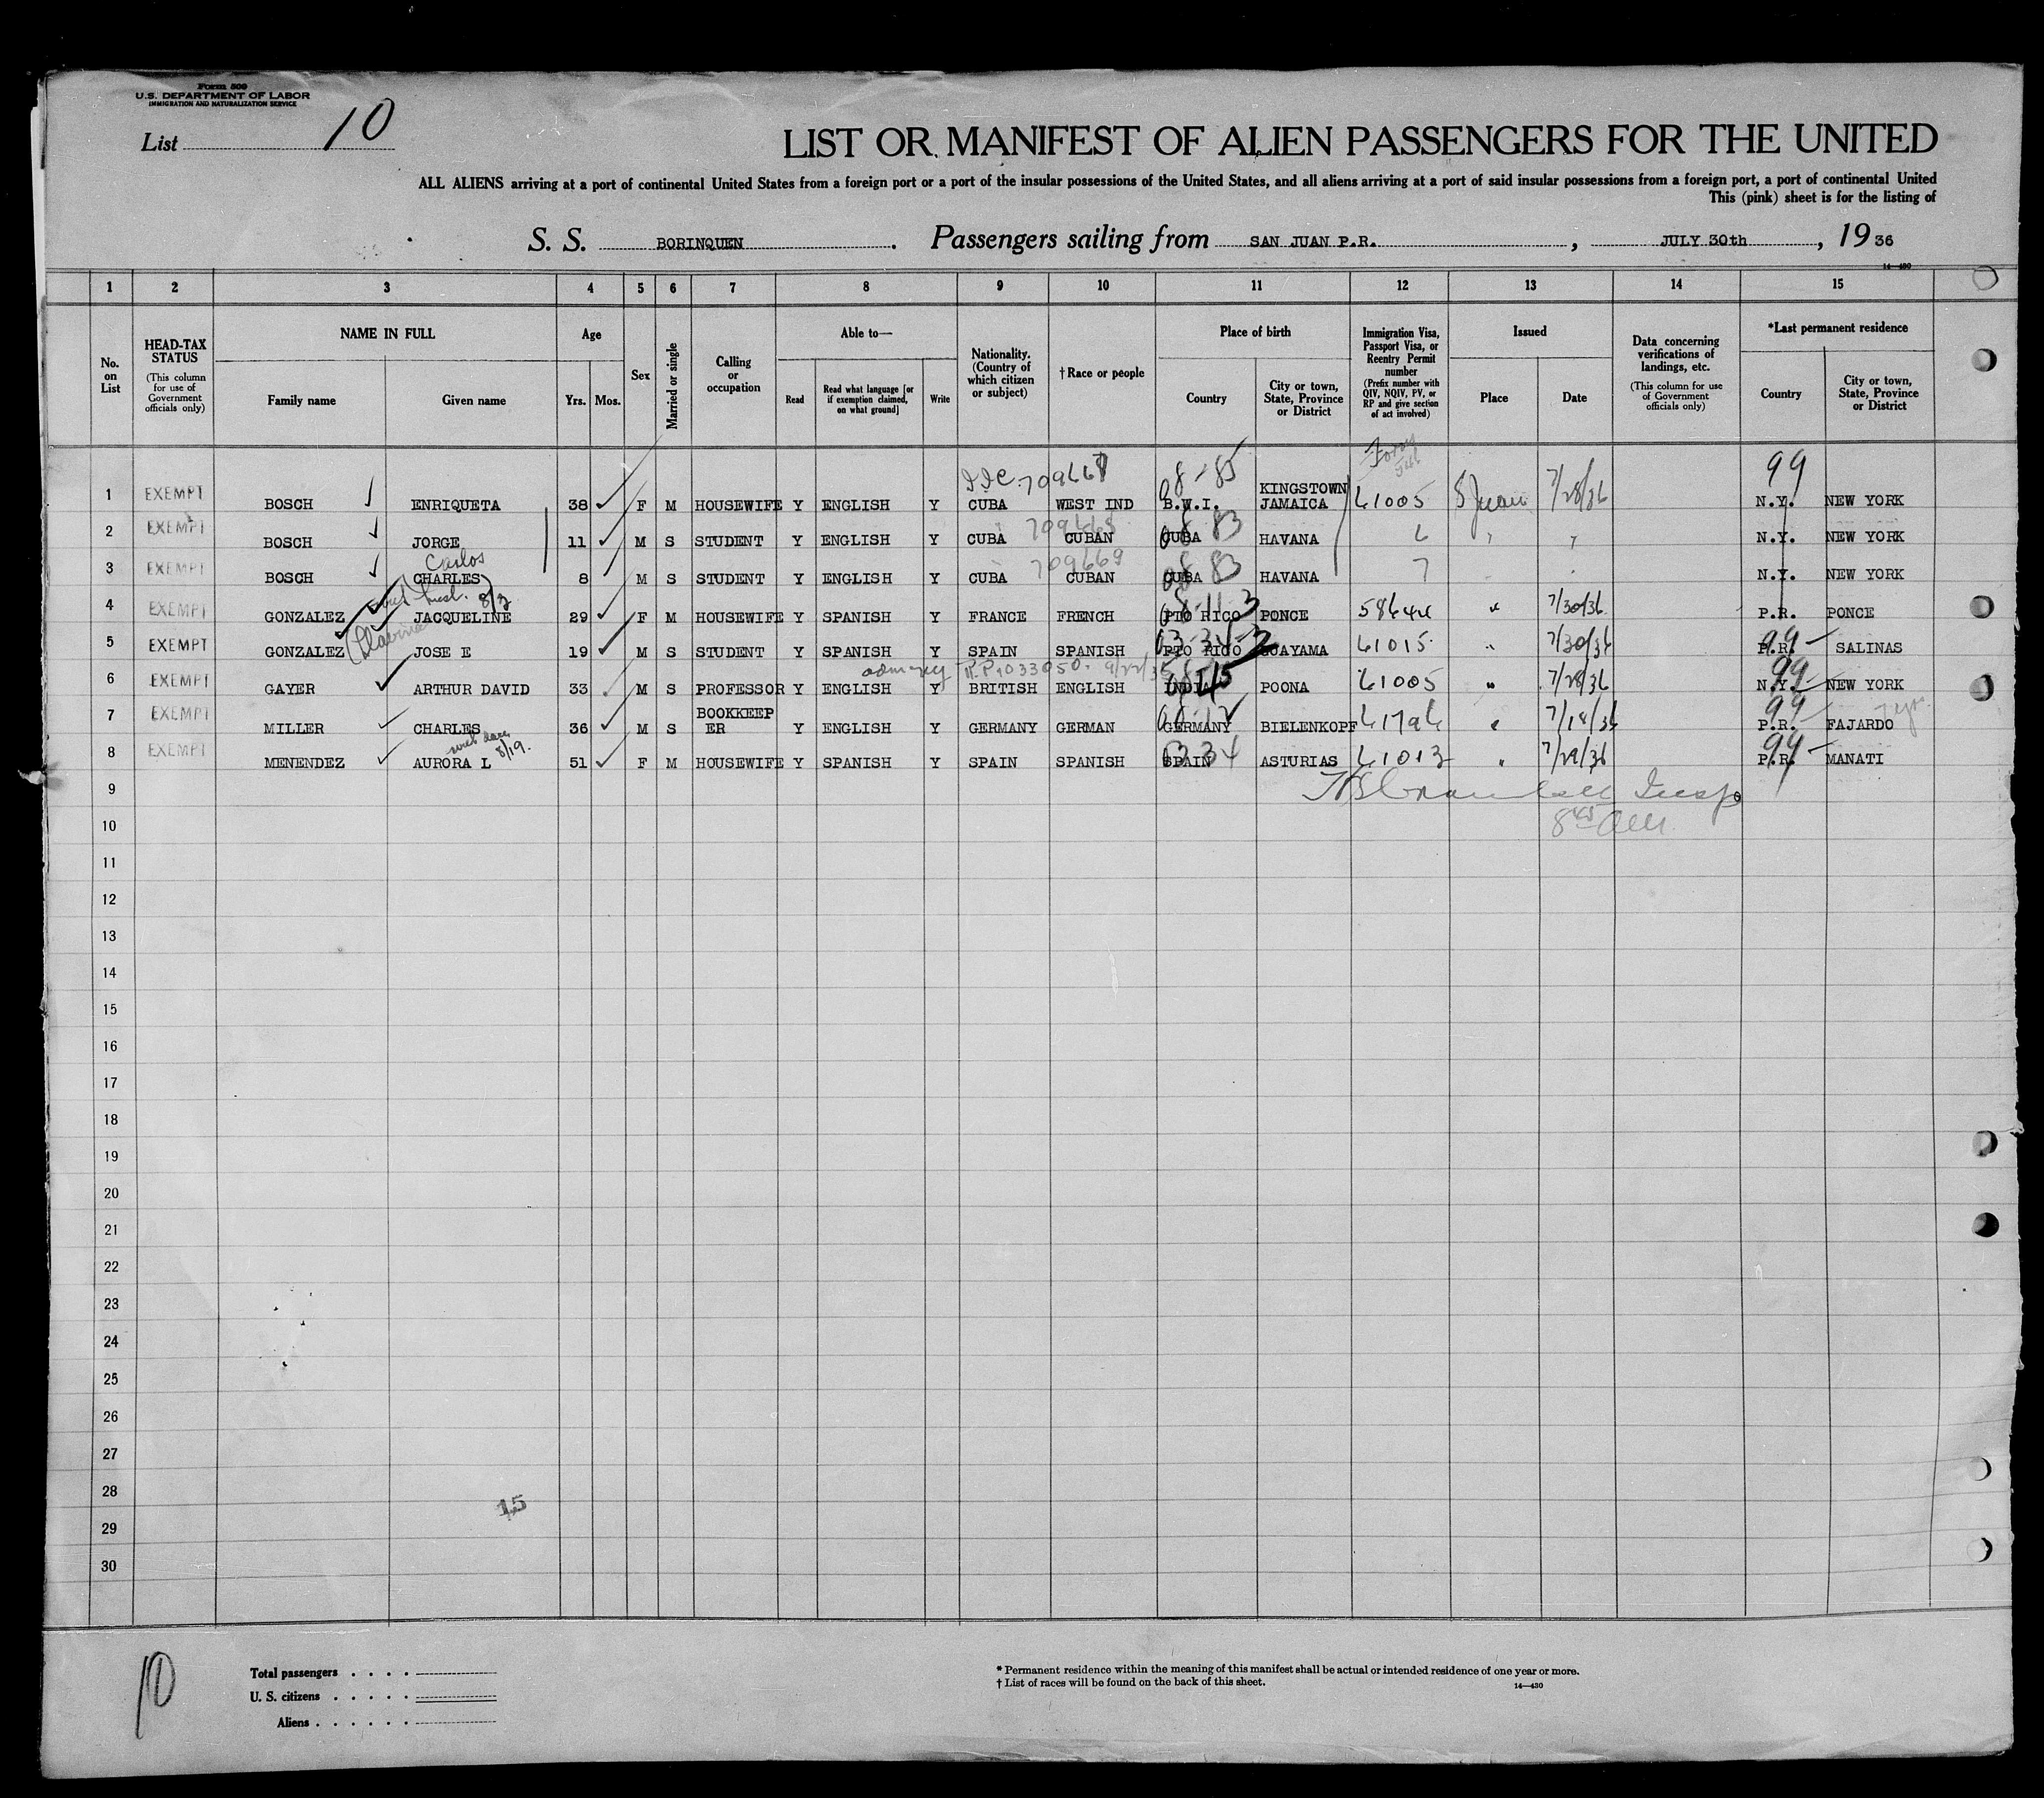 Form 500
U.S. DEPARTMENT OF LABOR
IMMIGRATION AND NATURALIZATION SERVICE
List 10
LIST OR MANIFEST OF ALIEN PASSENGERS FOR THE UNITED
ALL ALIENS arriving at a port of continental United States from a foreign port or a port of the insular possessions of the United States, and all aliens arriving at a port of said insular possessions from a foreign port, a port of continental United
This (pink) sheet is for the listing of
S. S. BORINQUEN. Passengers sailing from SAN JUAN P.R., JULY 30th, 1936
14—430
1 2 3 4 5 6 7 8 9 10 11 12 13 14 15
No. on List
HEAD-TAX STATUS
(This column for use of Government officials only)
NAME IN FULL
Family name
Given name
Age
Yrs.
Mos.
Sex
Married or single
Calling or occupation
Able to—
Read
Read what language [or if exemption claimed, on what ground]
Write
Nationality. (Country of which citizen or subject)
†Race or people
Place of birth
Country
City or town, State, Province or District
Immigration Visa, Passport Visa, or Reentry Permit number
(Prefix number with QIV, NQIV, PV, or RP and give section of act involved)
Issued
Place
Date
Data concerning verifications of landings, etc.
(This column for use of Government officials only)
*Last permanent residence
Country
City or town, State, Province or District
709667 8-85 99
1 EXEMPT BOSCH ENRIQUETA 38 F M HOUSEWIFE Y ENGLISH Y CUBA WEST IND B.W.I. KINGSTOWN JAMAICA 61005 S Juan 7/28/36 N.Y. NEW YORK
709668 83
2 EXEMPT BOSCH JORGE 11 M S STUDENT Y ENGLISH Y CUBA CUBAN CUBA HAVANA 6 " " N.Y. NEW YORK
Carlos 709669 83
3 EXEMPT BOSCH CHARLES 8 M S STUDENT Y ENGLISH Y CUBA CUBAN CUBA HAVANA 7 N.Y. NEW YORK
4 EXEMPT GONZALEZ JACQUELINE 29 F M HOUSEWIFE Y SPANISH Y FRANCE FRENCH PTO RICO PONCE 58644 " 7/30/36 P.R. PONCE
99
5 EXEMPT GONZALEZ JOSE E 19 M S STUDENT Y SPANISH Y SPAIN SPANISH PTO RICO GUAYAMA 61015 " 7/30/36 P.R. SALINAS
R.P. 1033050. 99
6 EXEMPT GAYER ARTHUR DAVID 33 M S PROFESSOR Y ENGLISH Y BRITISH ENGLISH INDIA POONA 61005 " 7/28/36 N.Y. NEW YORK
99
7 EXEMPT MILLER CHARLES 36 M S BOOKKEEPER Y ENGLISH Y GERMANY GERMAN GERMANY BIELENKOPF 61796 " 7/18/36 P.R. FAJARDO
8/19. 99
8 EXEMPT MENENDEZ AURORA L 51 F M HOUSEWIFE Y SPANISH Y SPAIN SPANISH SPAIN ASTURIAS 61013 " 7/29/36 P.R. MANATI
9
10
11
12
13
14
15
16
17
18
19
20
21
22
23
24
25
26
27
28
15
29
30
10
Total passengers . . . .
U. S. citizens . . . . .
Aliens . . . . . .
* Permanent residence within the meaning of this manifest shall be actual or intended residence of one year or more.
† List of races will be found on the back of this sheet.
14—430